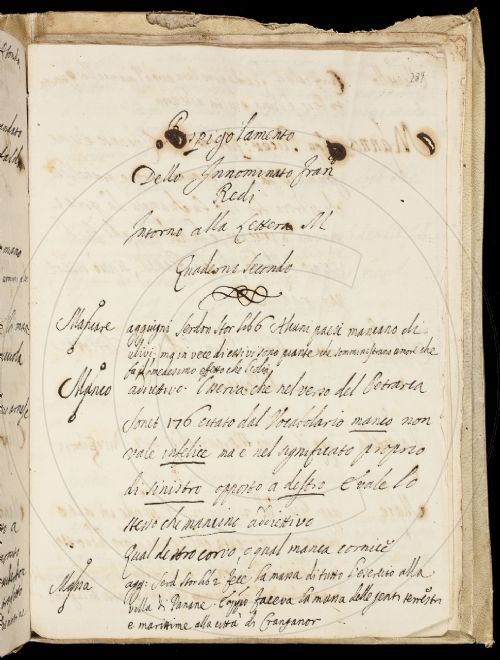 239
Rispigolamento
Dello Innominato Fran
Redi
Intorno alla Lettera M
Quaderno Secondo
Mancare
aggiugni Serdon Stor lib 6 Alcuni paesi mancano di
ulivi, ma in vece di essi vi sono piante che somministrano umore che
fa il medesimo effetto che l'olio
Manco
addiettivo. Osserva che nel verso del Petrarca
Sonet 176 citato dal Vocabolario manco non
vale infelice ma è nel significato proprio
di sinistro opposto a destro E vale lo
stesso che mancino addiettivo
Qual destro corvo, o qual manca cornice
Massa
agg: Serd. Stor lib 2 fece la massa di tutto l'esercito alla
Villa di Panane. E faceva la massa delle genti terrestri
e marittime alla città di Cranganor